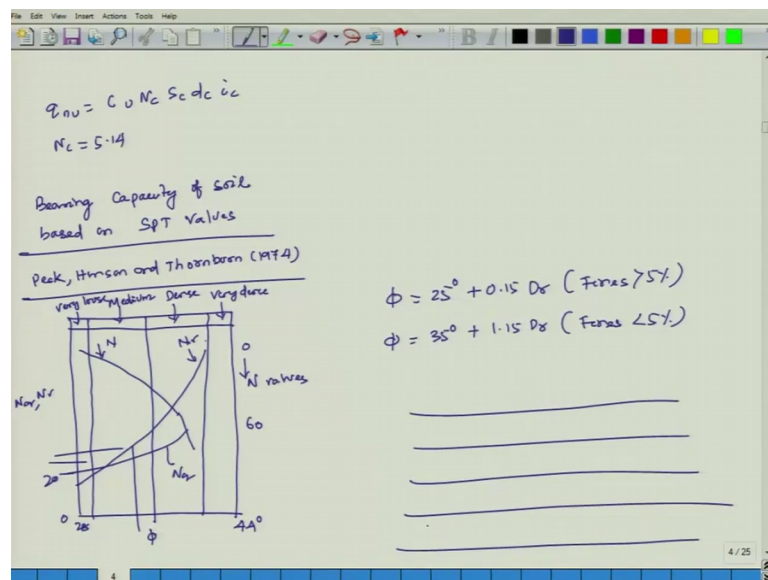 File Edit View Insert Actions Tools Help
B I
qnu = Cu Nc Sc dc ic
Nc = 5.14
Bearing Capacity of soil
based on SPT values
Peck, Hanson and Thornborn (1974)
very loose Medium Dense very dense
N Nr 0
N values
Nq, Nr
60
20
Nq
0 28 φ 44°
φ = 25° + 0.15 Dr (Fines >5%)
φ = 35° + 1.15 Dr (Fines <5%)
4 / 25
4